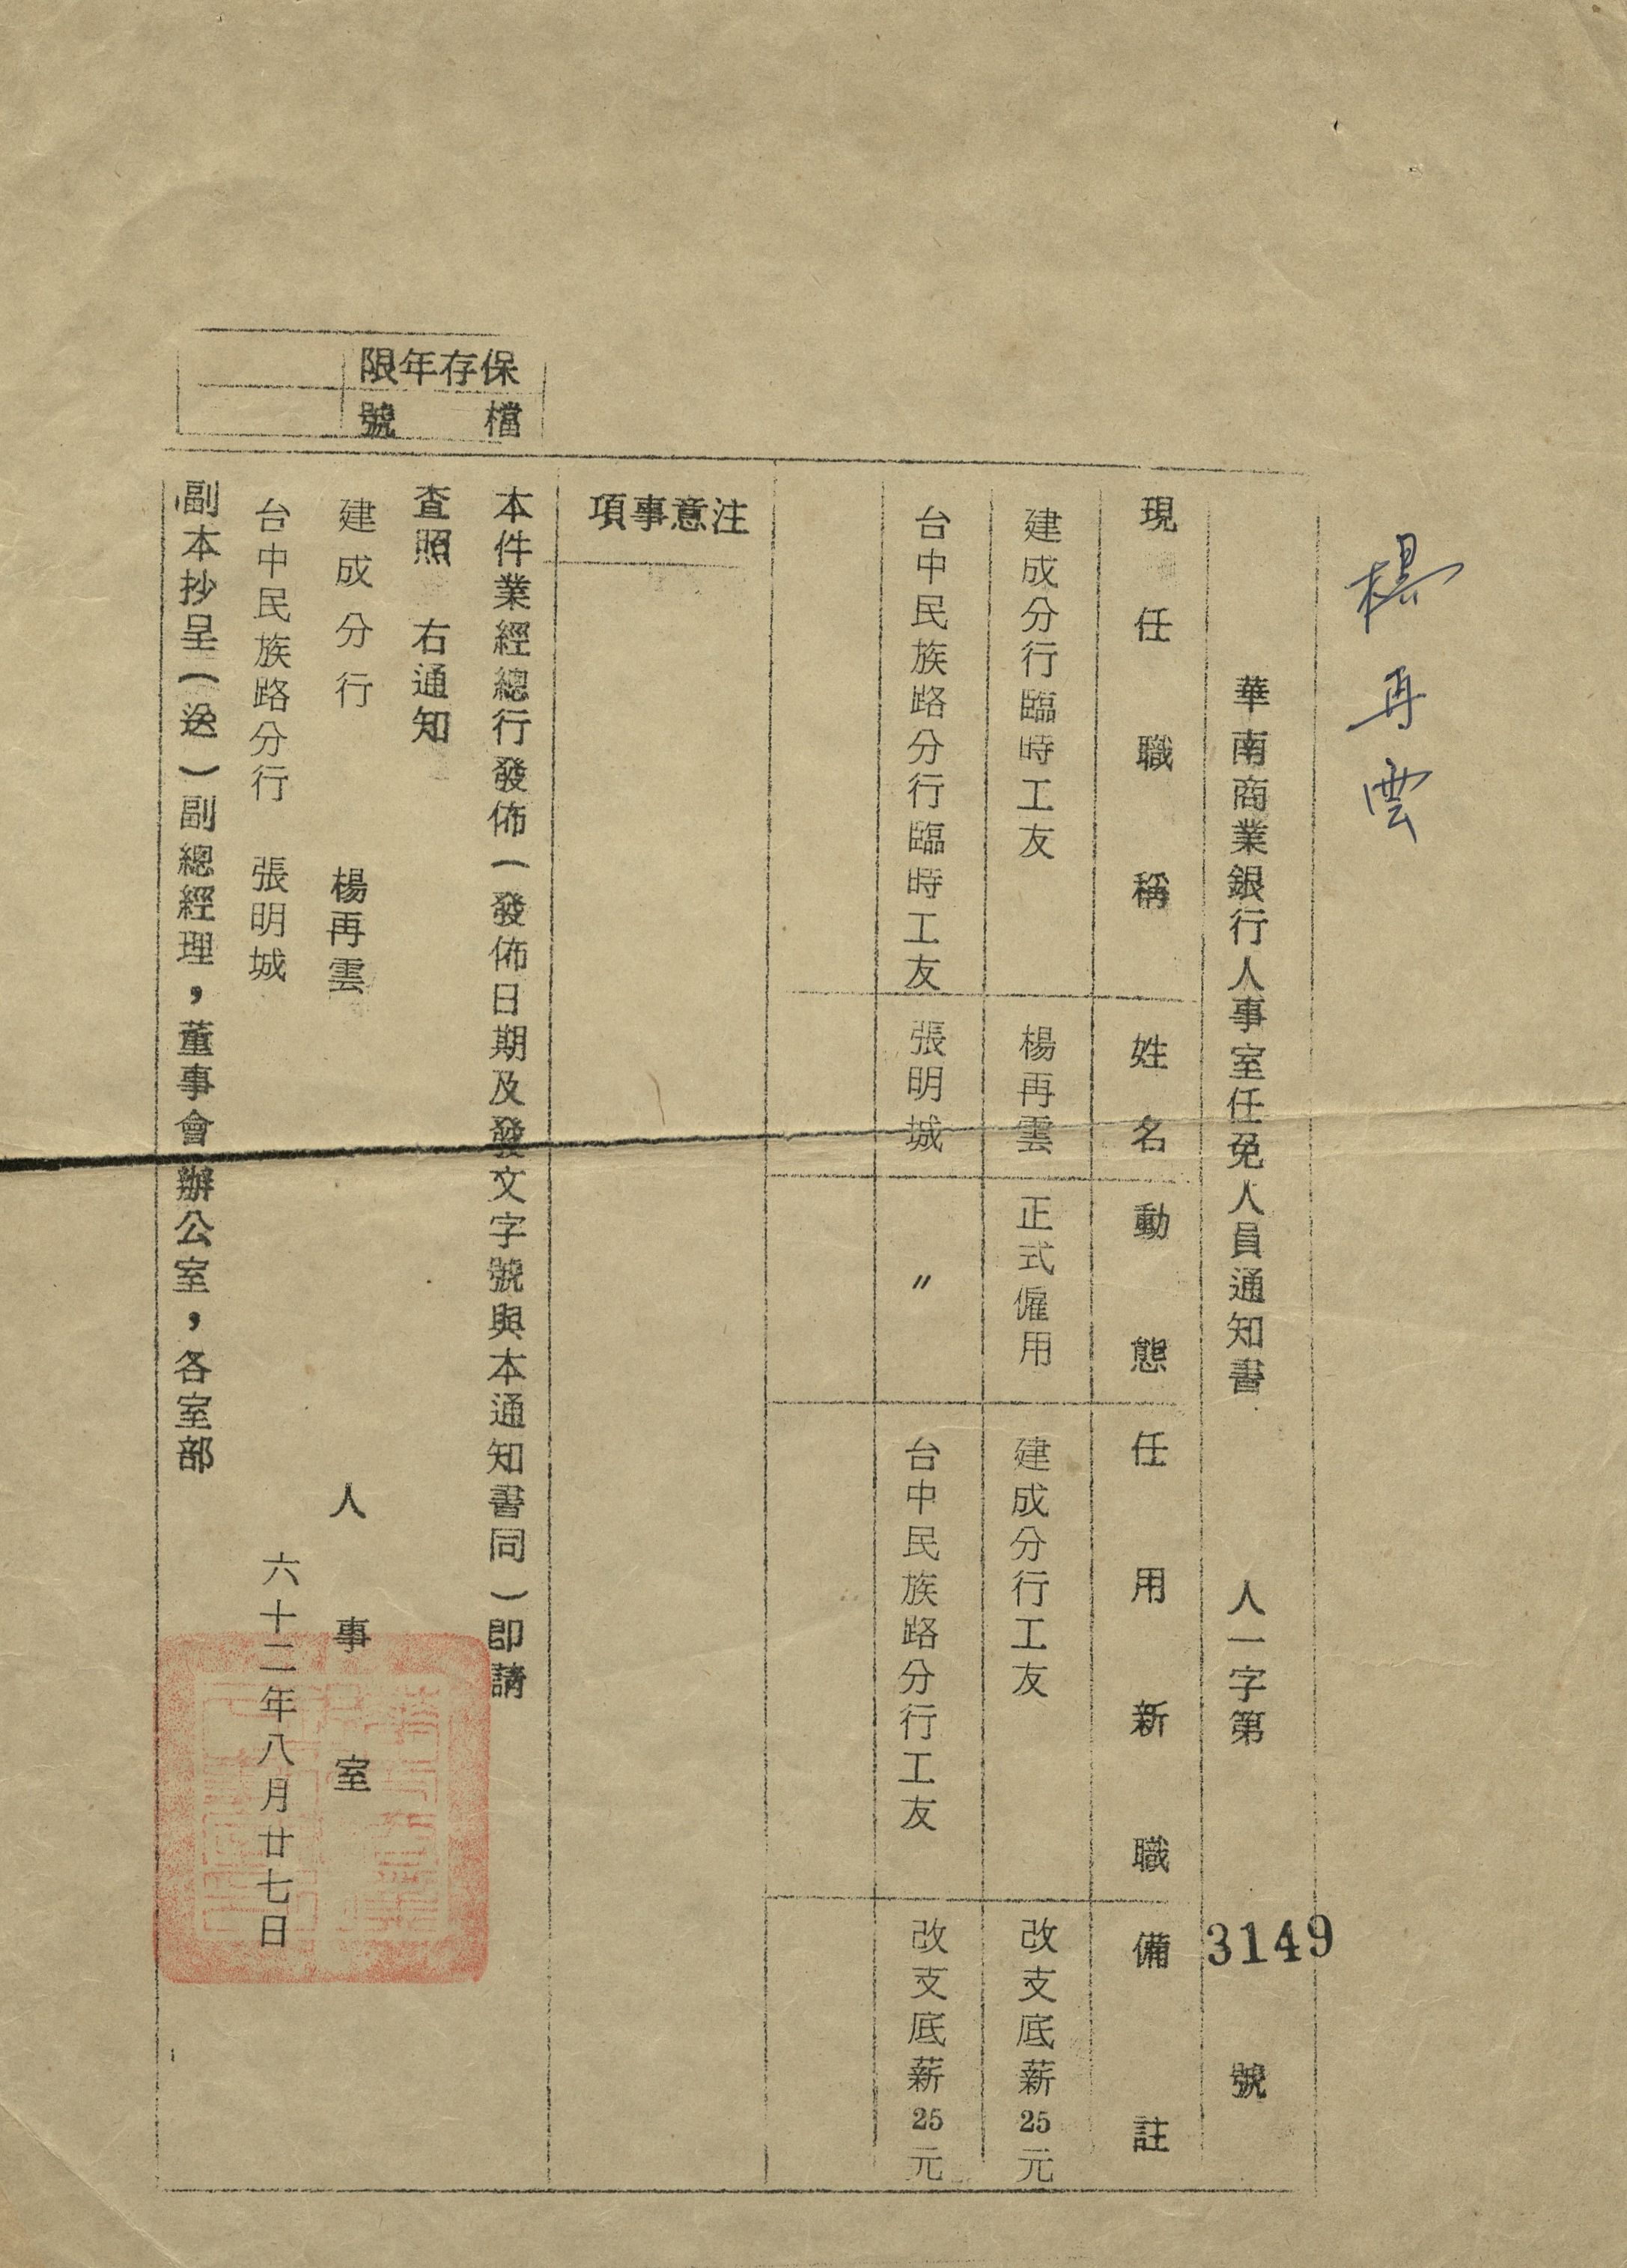 楊再雲
華南商業銀行人事室任免人員通知書 人一字第 3149 號
現任職稱 姓名 動態 任用新職 備註
建成分行臨時工友 楊再雲 正式僱用 建成分行工友 改支底薪25元
台中民族路分行臨時工友 張明城 〃 台中民族路分行工友 改支底薪25元
注意事項
保存年限
檔號
本件業經總行發佈(發佈日期及發文字號與本通知書同)即請
查照 右通知
建成分行 楊再雲 人事室
台中民族路分行 張明城 六十二年八月廿七日
副本抄呈(送)副總經理,董事會辦公室,各室部